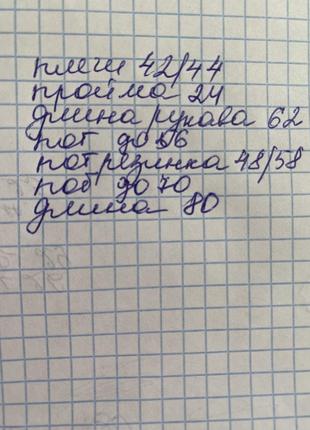 плечи 42/44
пройма 24
длина рукава 62
пот до 56
пот резинка 48/58
поб до 70
длина 80